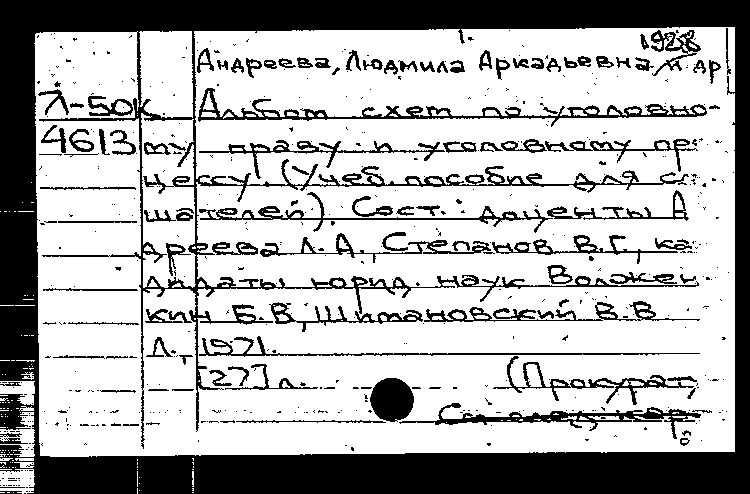 1.
1928
Андреева, Людмила Аркадьевна и др
Л-50к Альбом схем по уголовно-
4613 му праву и уголовному пр
цессу. (Учеб. пособие для с
шателей). Сост.: доценты А
дреева Л.А., Степанов В.Г., ка
дидаты юрид. наук Волжен
кин Б.В, Шимановский В.В
Л., 1971.
[27] л. (Прокурат,
См след. кар